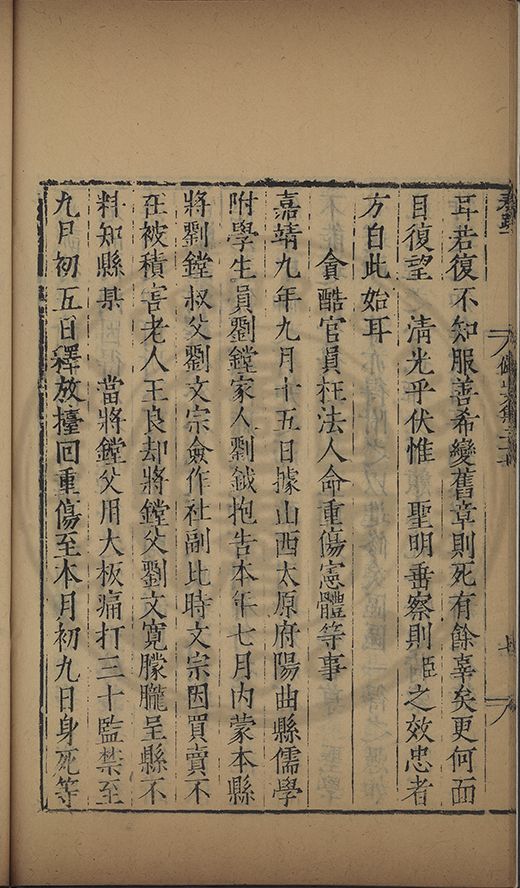 耳若復不知服善希變舊章則死有餘辜矣更何面
目復望 清光乎伏惟 聖明垂察則臣之效忠者
方自此始耳
貪酷官員枉法人命重傷憲體等事
嘉靖九年九月十五日據山西太原府陽曲縣儒學
附學生員劉鏜家人劉鉞抱告本年七月內蒙本縣
將劉鏜叔父劉文宗僉作社副比時文宗因買賣不
在被積害老人王良却將鏜父劉文寬朦朧呈縣不
料知縣某 當將鏜父用大板痛打三十監禁至
九月初五日釋放擡回重傷至本月初九日身死等